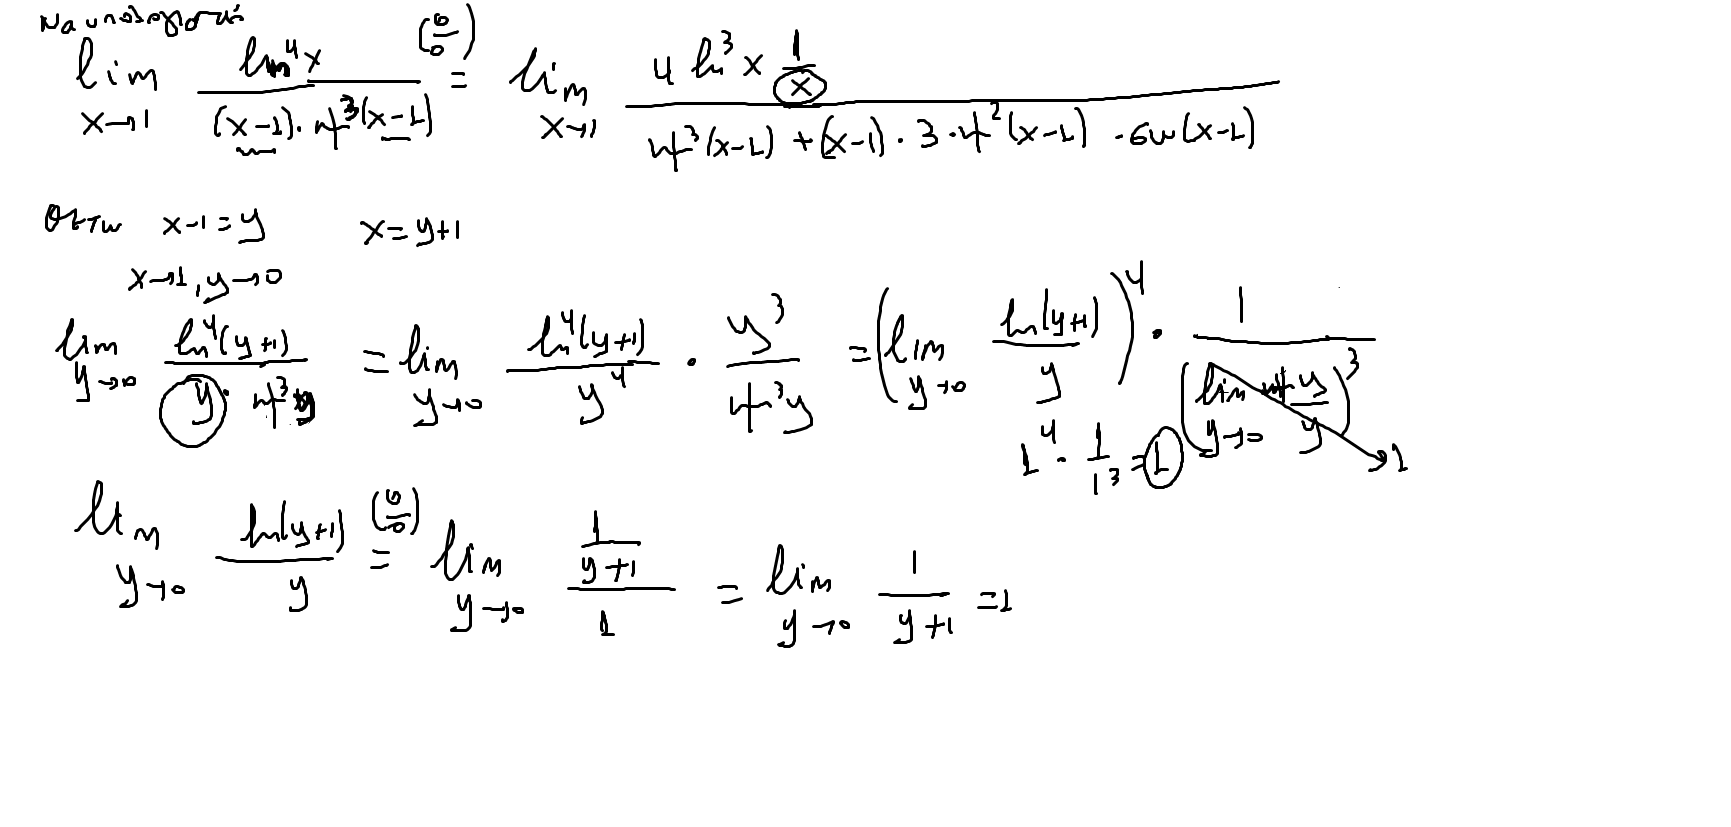 Να υπολογιστεί
lim x→1 ln⁴x / ((x-1)·ημ³(x-1)) (0/0) = lim x→1 4 ln³x 1/x / (ημ³(x-1) + (x-1)·3·ημ²(x-1)·συν(x-1))
Θέτω x-1=y x=y+1
x→1, y→0
lim y→0 ln⁴(y+1) / (y·ημ³y) = lim y→0 ln⁴(y+1) / y⁴ · y³ / ημ³y = (lim y→0 ln(y+1) / y)⁴ · 1 / (lim y→0 ημy / y)³ → 1
1⁴ · 1/1³ = 1
lim y→0 ln(y+1) / y (0/0) = lim y→0 (1/(y+1)) / 1 = lim y→0 1/(y+1) = 1